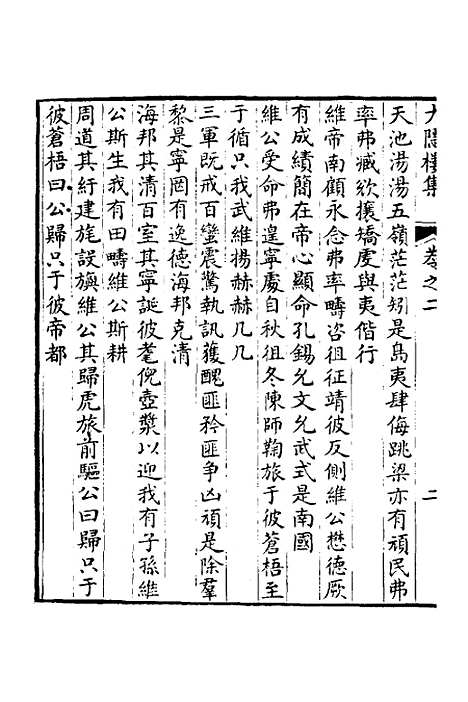 大隱樓集
卷之二
二
天池湯湯五嶺茫茫矧是島夷肆侮跳梁亦有頑民弗
率弗臧欲攘矯虔與夷偕行
維帝南顧永念弗率疇咨徂征靖彼反側維公懋德厥
有成績簡在帝心顯命孔錫允文允武式是南國
維公受命弗遑寧處自秋徂冬陳師鞠旅于彼蒼梧至
于循只我武維揚赫赫几几
三軍既戒百蠻震驚執訊獲醜匪矜匪争凶頑是除羣
黎是寧罔有逸德海邦克清
海邦其清百室其寧誕彼耄倪壺漿以迎我有子孫維
公斯生我有田疇維公斯耕
周道其紆建旄設旟維公其歸虎旅前驅公曰歸只于
彼蒼梧曰公歸只于彼帝都